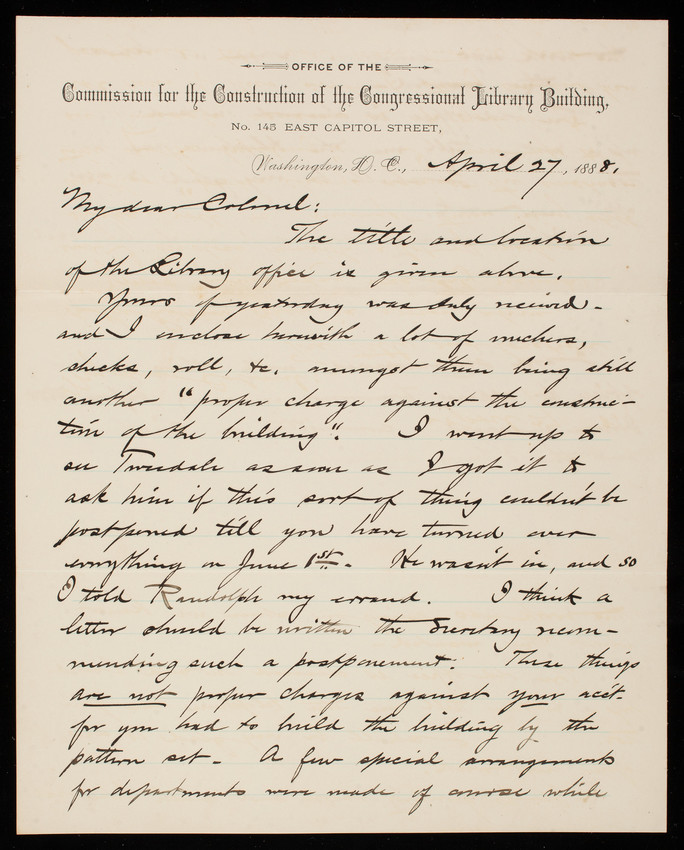 OFFICE OF THE
Commission for the Construction of the Congressional Library Building,
No. 145 EAST CAPITOL STREET,
Washington, D. C., April 27, 1888.
My dear Colonel:
The title and location
of the Library office is given above.
Yours of yesterday was duly received -
and I enclose herewith a lot of vouchers,
checks, roll, &c. amongst them being still
another "proper charge against the construc-
tion of the building". I went up to
see Tweedale as soon as I got it to
ask him if this sort of thing couldn't be
postponed till you have turned over
everything on June 1st - He wasn't in, and so
I told Randolph my errand. I think a
letter should be written the Secretary recom-
mending such a postponement. These things
are not proper charges against your acct.
for you had to build the building by the
pattern set - A few special arrangements
for departments were made of course while